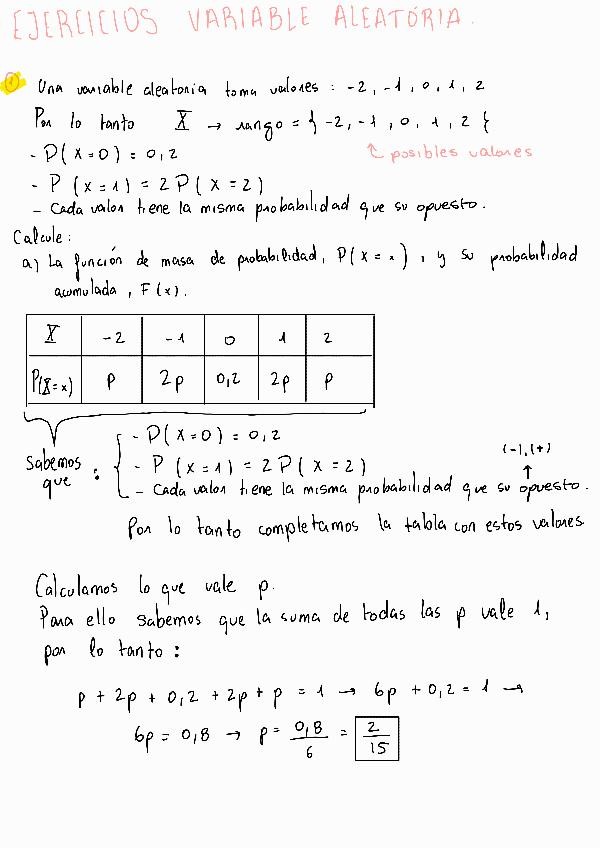 EJERCICIOS VARIABLE ALEATÓRIA.
1 Una variable aleatoria toma valores : -2, -1, 0, 1, 2
Por lo tanto X → rango = { -2, -1, 0, 1, 2 {
- P(X=0) = 0,2
↑ posibles valores
- P(X=1) = 2P(X=2)
- Cada valor tiene la misma probabilidad que su opuesto.
Calcule:
a) La función de masa de probabilidad, P(X=x), y su probabilidad
acumulada, F(x).
X -2 -1 0 1 2
P(X=x) p 2p 0,2 2p p
Sabemos que :
- P(X=0) = 0,2
- P(X=1) = 2P(X=2)
(-1,1+)
↑
- Cada valor tiene la misma probabilidad que su opuesto.
Por lo tanto completamos la tabla con estos valores
Calculamos lo que vale p.
Para ello sabemos que la suma de todas las p vale 1,
por lo tanto :
p + 2p + 0,2 + 2p + p = 1 → 6p + 0,2 = 1 →
6p = 0,8 → p = 0,8/6 = 2/15